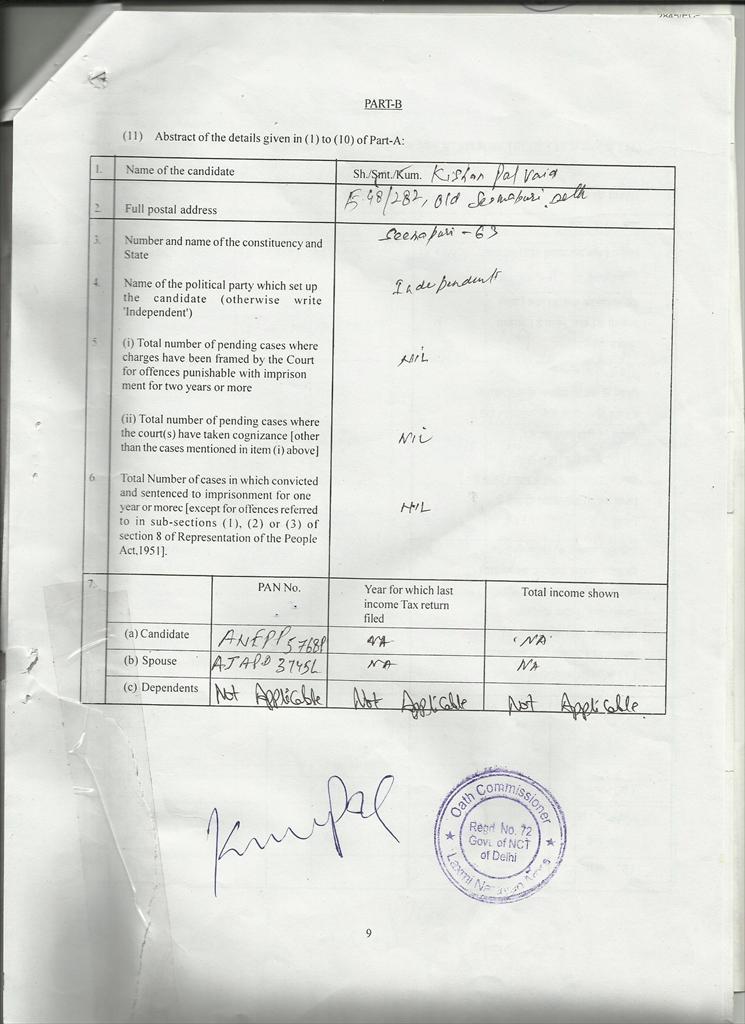 PART-B
(11) Abstract of the details given in (1) to (10) of Part-A:
1. Name of the candidate Sh./Smt./Kum. Kishan Pal Vaid
2. Full postal address E-48/282, Old Seemapuri, Delh
3. Number and name of the constituency and Seemapuri - 63
State
4. Name of the political party which set up Independents
the candidate (otherwise write
'Independent')
5. (i) Total number of pending cases where
charges have been framed by the Court NIL
for offences punishable with imprison
ment for two years or more
(ii) Total number of pending cases where
the court(s) have taken cognizance [other NIL
than the cases mentioned in item (i) above]
6. Total Number of cases in which convicted
and sentenced to imprisonment for one
year or morec [except for offences referred NIL
to in sub-sections (1), (2) or (3) of
section 8 of Representation of the People
Act,1951].
7. PAN No. Year for which last Total income shown
income Tax return
filed
(a) Candidate ANEPP5768P NA NA
(b) Spouse AJAPD3745L NA NA
(c) Dependents Not Applicable Not Applicable Not Applicable
Oath Commissioner
Regd No. 72
Govt. of NCT
of Delhi
Laxmi Narayan
9